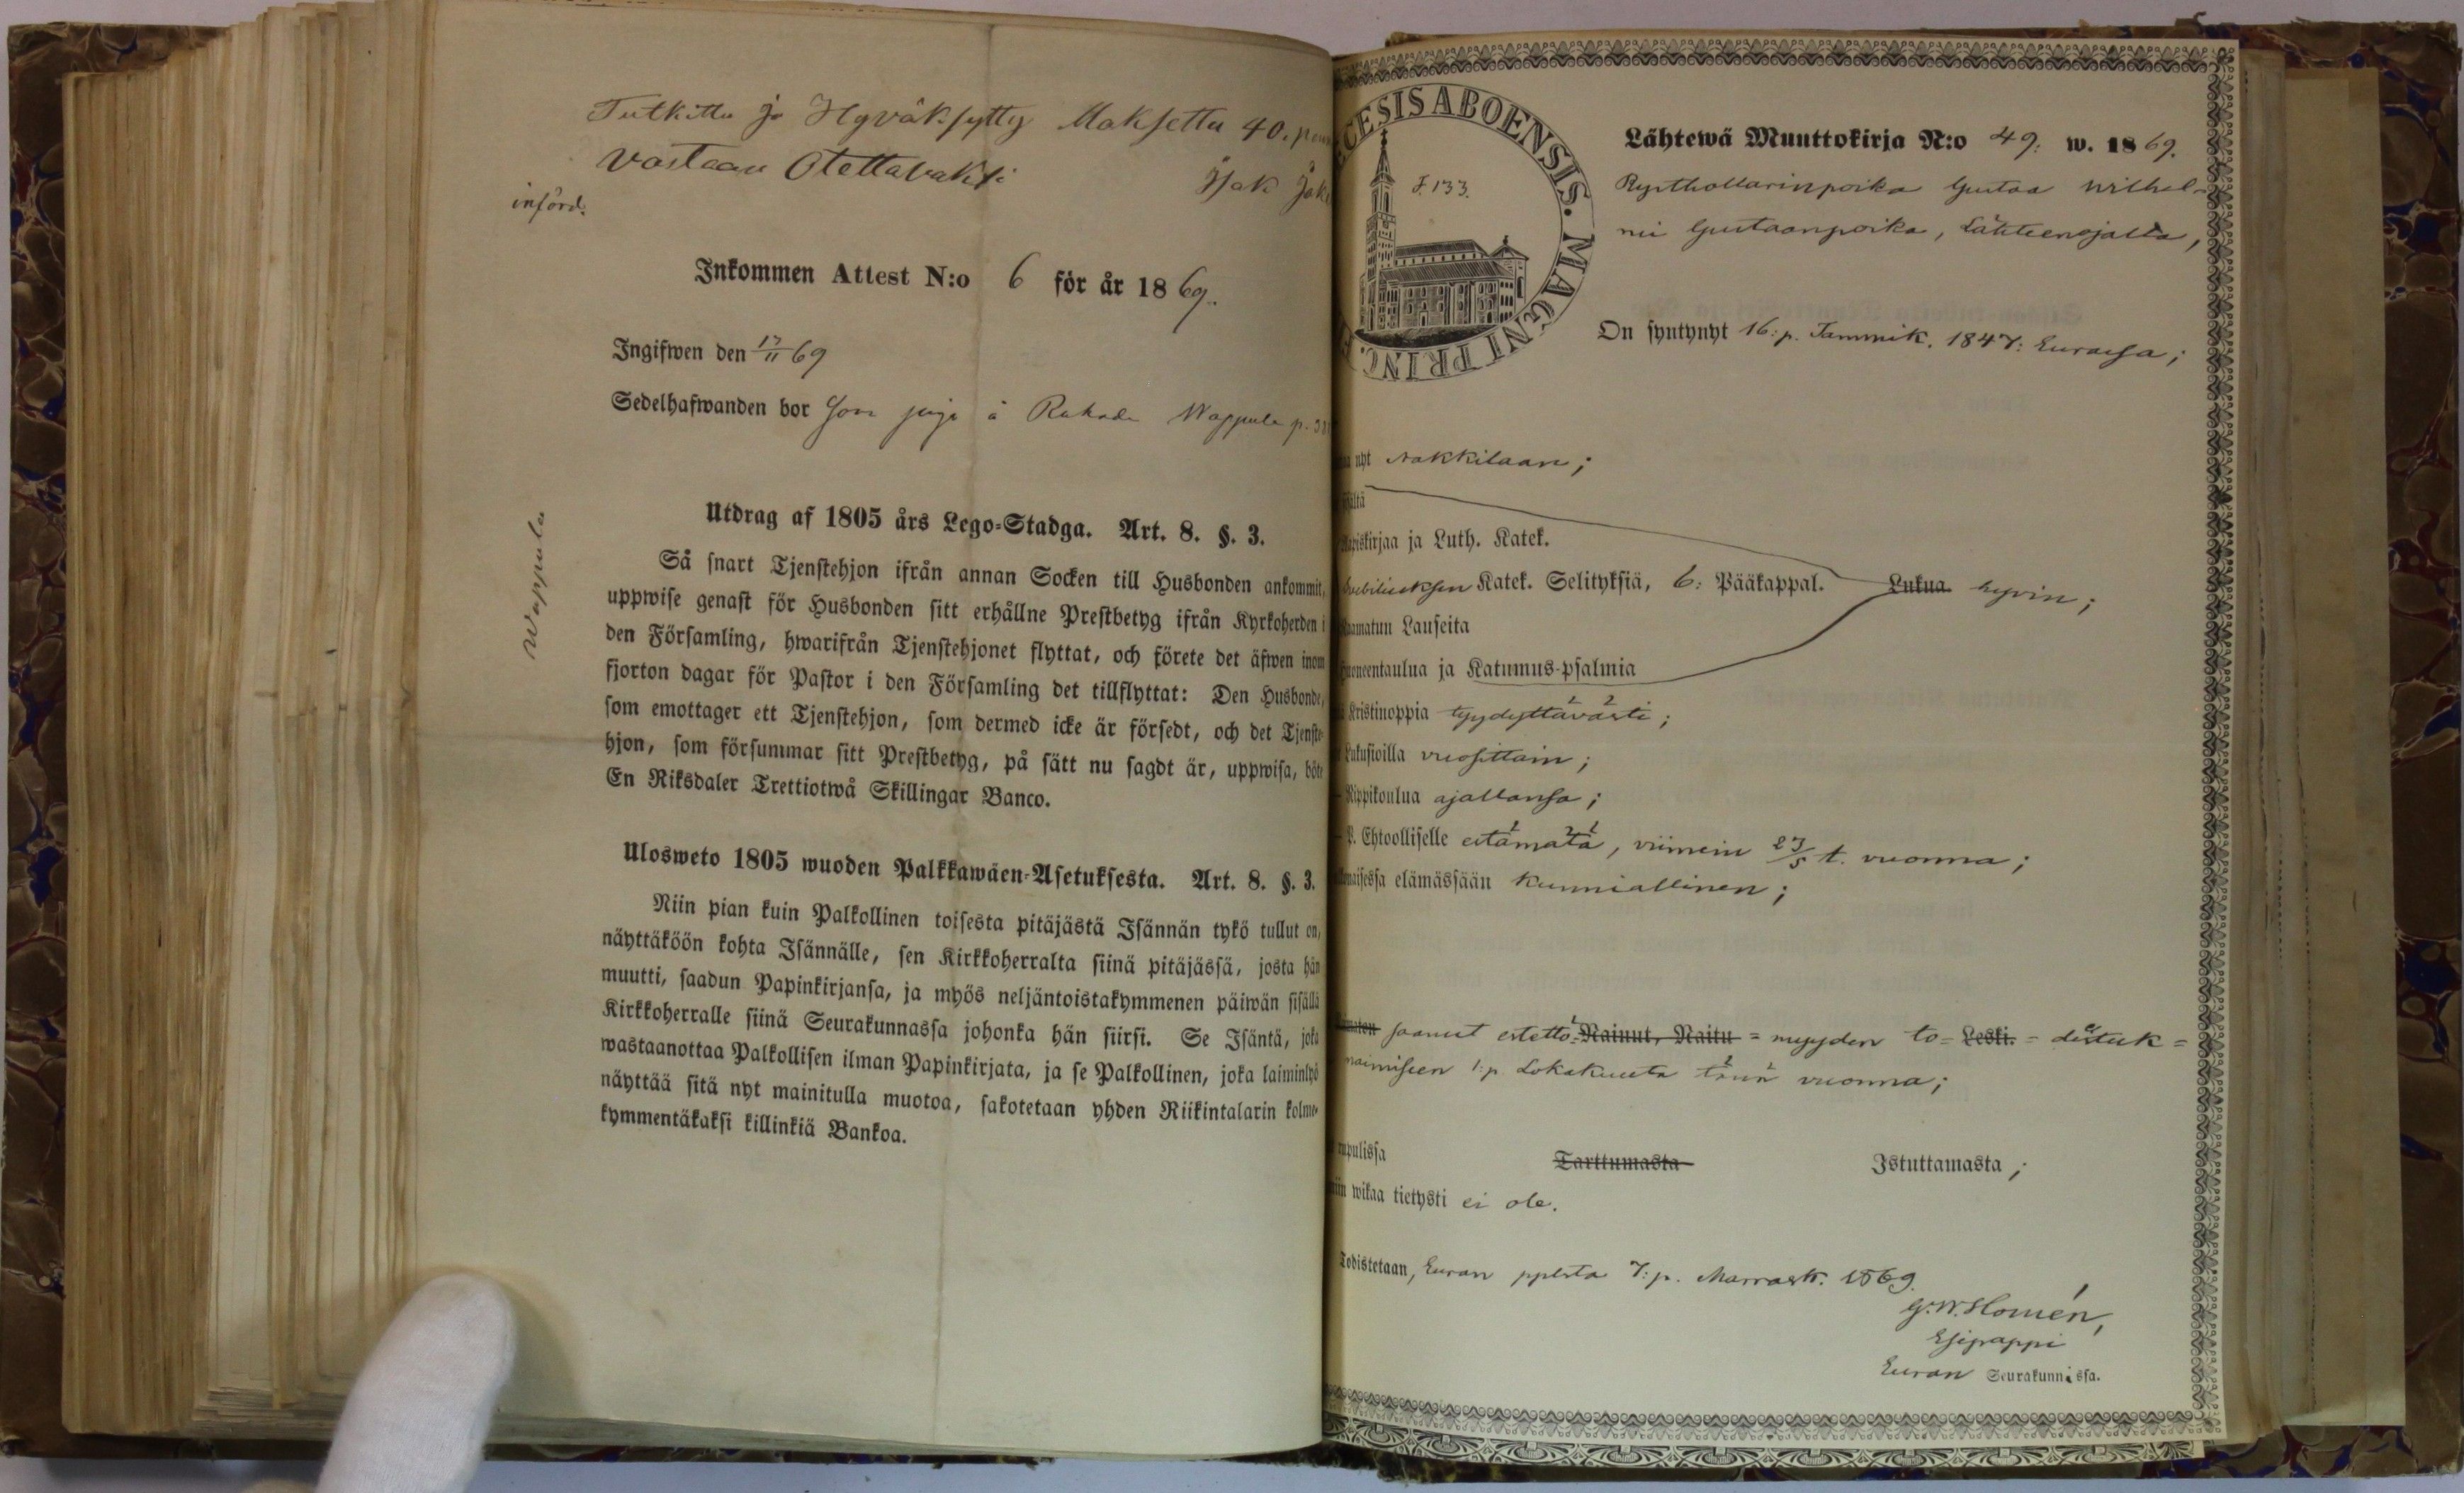 Tutkittu ja Hyväksytty Maksettu 40.
Vastaan Otettavaksi
införd.
Inkommen Attest N:o 6 för år 1869.
Ingifwen den 17/11 69
Sedelhafwanden bor Som piga å Wappula
Wappula
Utdrag af 1805 års Lego-Stadga. Art. 8. §. 3.
Så snart Tjenstehjon ifrån annan Socken till Husbonden ankommit,
uppwise genast för Husbonden sitt erhållne Prestbetyg ifrån Kyrkoherden i
den Församling, hwarifrån Tjenstehjonet flyttat, och förete det äfwen inom
fjorton dagar för Pastor i den Församling det tillflyttat: Den Husbonde,
som emottager ett Tjenstehjon, som dermed icke är försedt, och det Tjenste-
hjon, som försummar sitt Prestbetyg, på sätt nu sagdt är, uppwisa, böte
En Riksdaler Trettiotwå Skillingar Banco.
Ulosweto 1805 wuoden Palkkawäen-Asetuksesta. Art. 8. §. 3.
Niin pian kuin Palkollinen toisesta pitäjästä Isännän tykö tullut on,
näyttäköön kohta Isännälle, sen Kirkkoherralta siinä pitäjässä, josta hän
muutti, saadun Papinkirjansa, ja myös neljäntoistakymmenen päiwän sisällä
Kirkkoherralle siinä Seurakunnassa johonka hän siirsi. Se Isäntä, joka
wastaanottaa Palkollisen ilman Papinkirjata, ja se Palkollinen, joka laiminlyö
näyttää sitä nyt mainitulla muotoa, sakotetaan yhden Riikintalarin kolme-
kymmentäkaksi killinkiä Bankoa.
CESIS ABOENSIS. MAGNI PRINC.
F. 133.
Lähtewä Muuttokirja N:o 49: w. 1869.
Rusthollarinpoika Gustaa Wilhel-
mi Gustaanpoika, Lähteenojalta,
On syntynyt 16:p. Tammik. 1847: Eurassa;
nyt Nakkilaan;
Luth. Katek.
Katek. Selityksiä, 6: Pääkappal. Lukua hyvin;
Lauseita
ja Katumus-psalmia
Kristinoppia tyydyttävästi;
Lukusioilla vuosittain;
Rippikoulua ajallansa;
P. Ehtoolliselle estämätä, viimein 23/5 t. vuonna;
elämässään kunniallinen;
saanut estettö- Nainut, Naitu = myyden to- Leski. = distuk=
naimiseen 1:p. Lokakuuta tänä vuonna;
Tarttumasta Istuttamasta;
wikaa tietysti ei ole.
Todistetaan, Euran pplasta 7:p. Marrask. 1869.
G. W. Homén,
Esipappi
Euran Seurakunnissa.